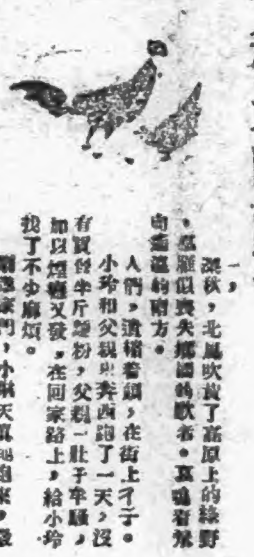 一，
深秋，北風吹黃了高原上的綠野
，孤雁似喪失鄉國的歌者。哀鳴着飛
向溫暖的南方。
人們，還搭着鎖，在街上彳亍。
小玲和父親東奔西跑了一天，沒
有買得半斤麵粉，父親一肚子牢騷，
加以煙癮又發，在回家路上，給小玲
找了不少麻煩。
家門，小琳天真地跑來，